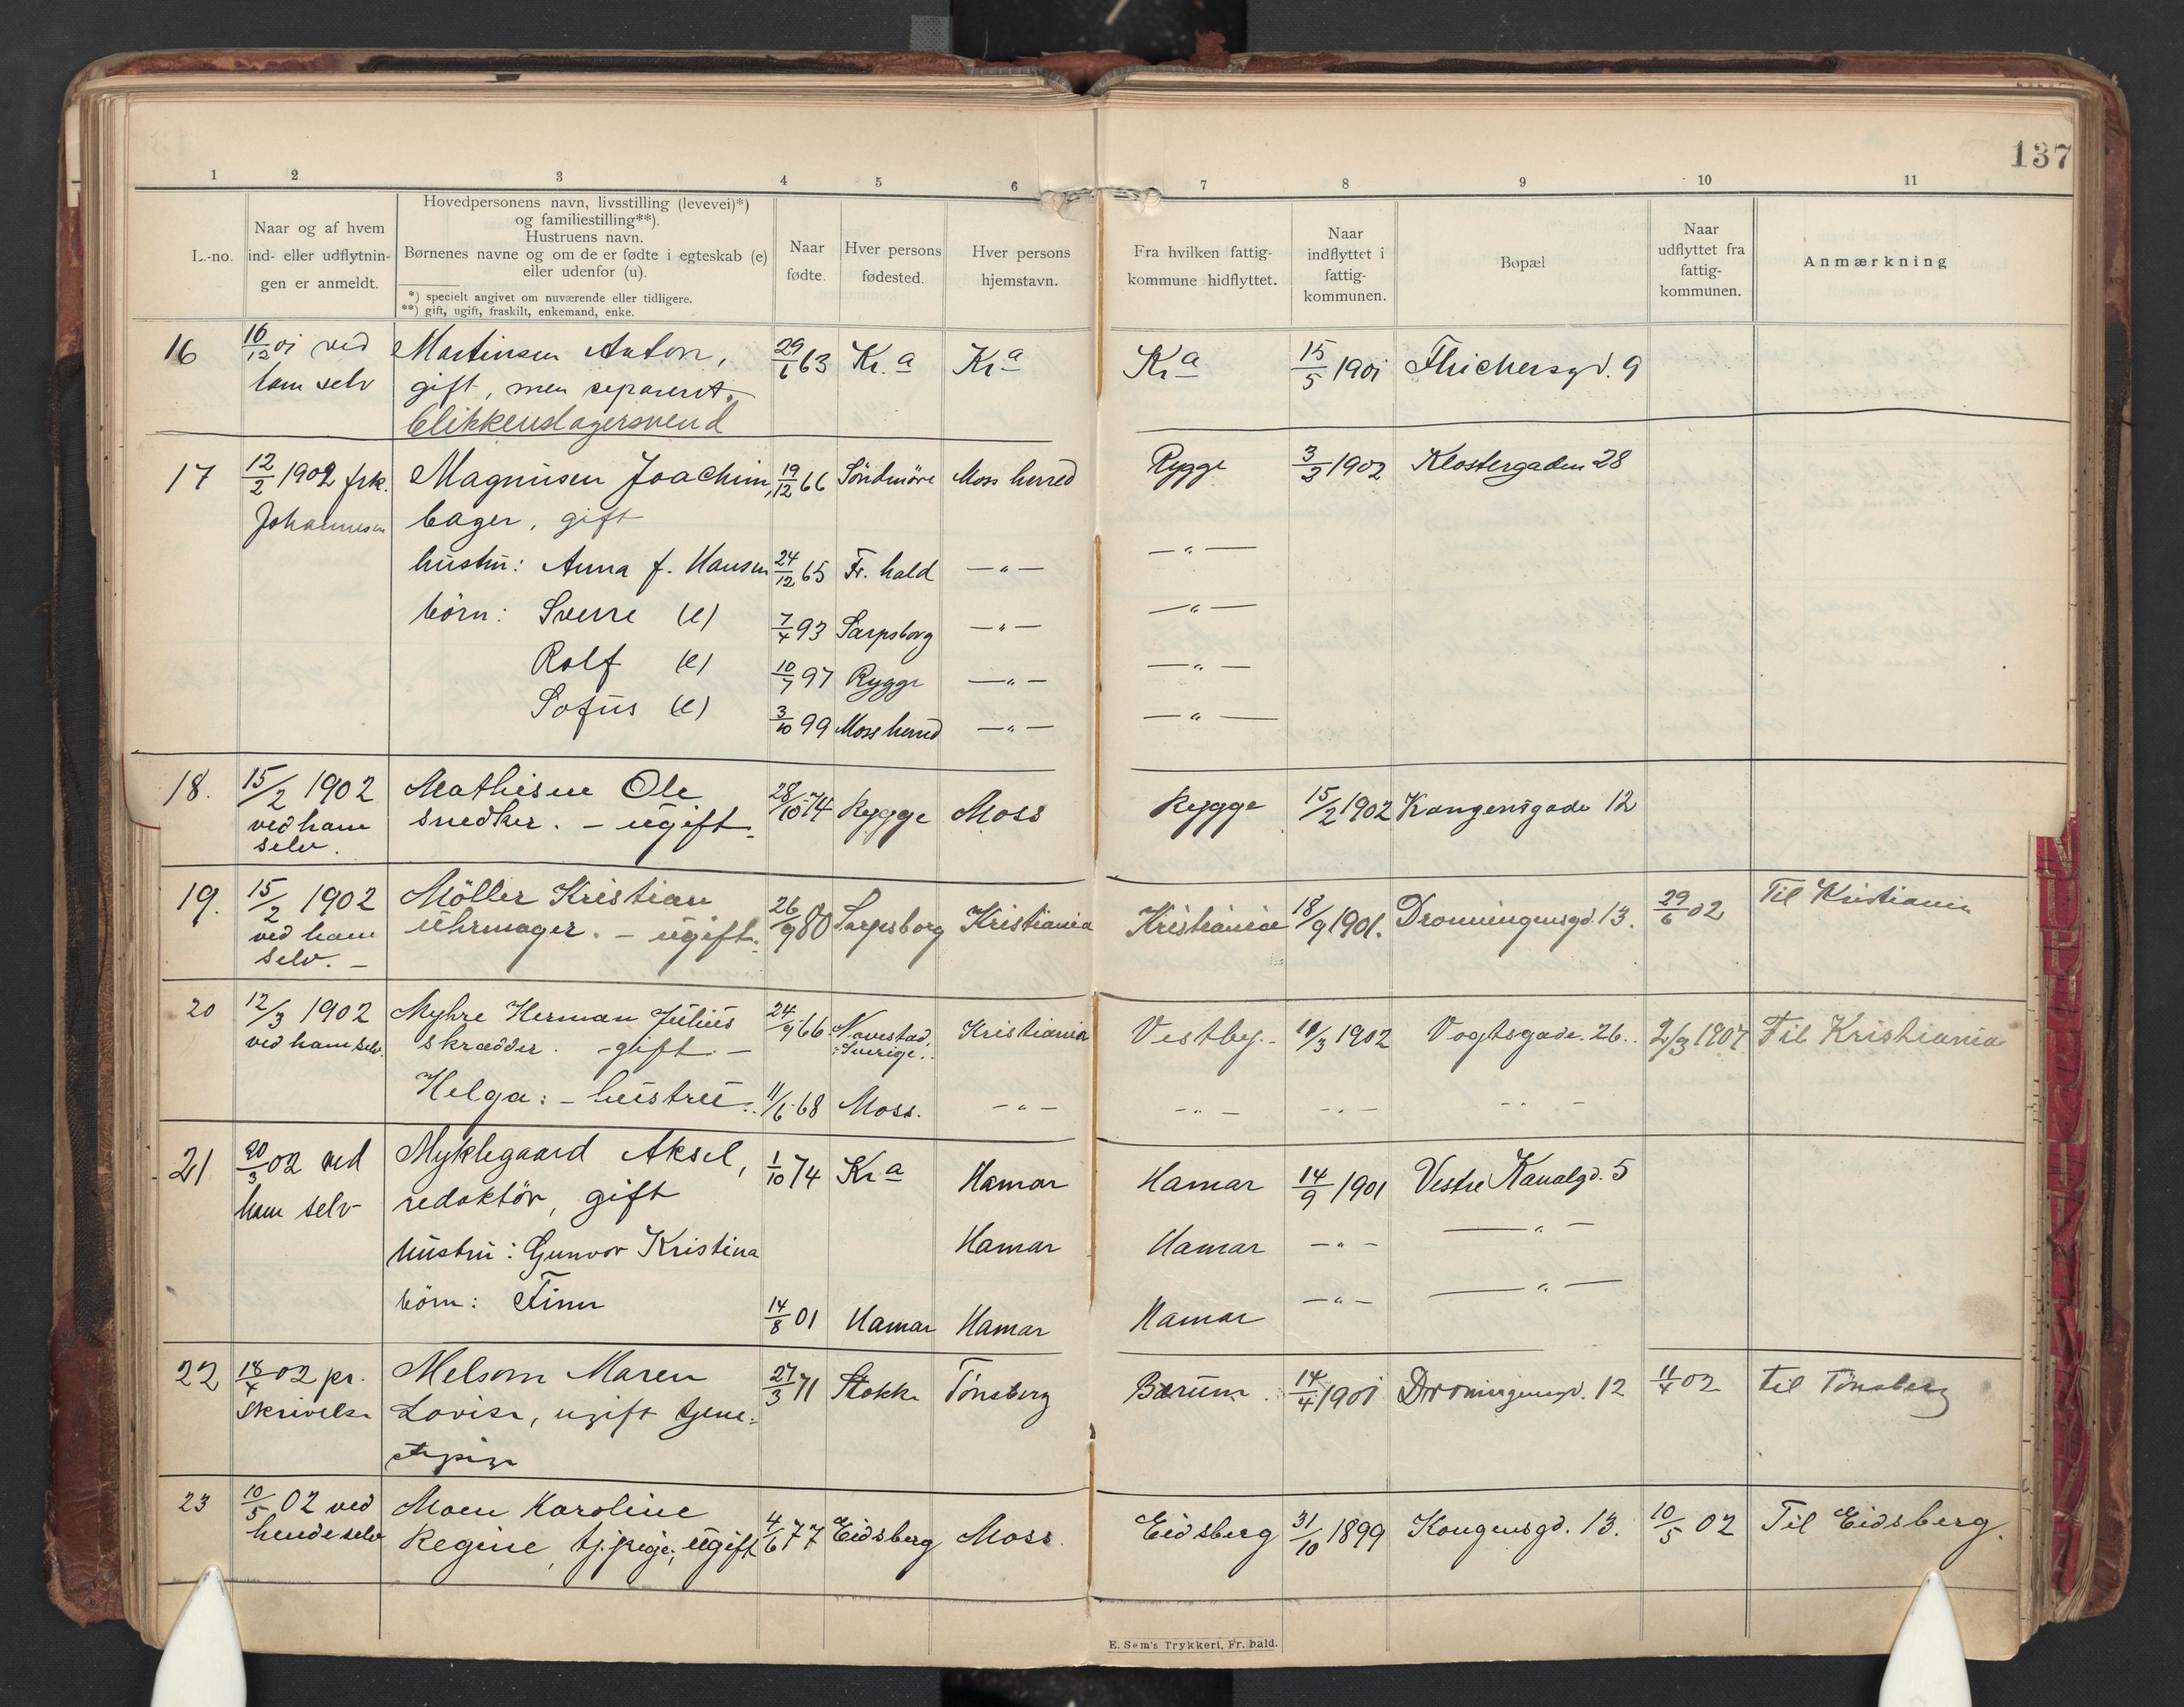 137
1 2 3 4 5 6 7 8 9 10 11
L.-no.
Naar og af hvem
ind- eller udflytnin-
gen er anmeldt.
Hovedpersonens navn, livsstilling (levevei)*)
og familiestilling**).
Hustruens navn.
Børnenes navne og om de er fødte i egteskab (e)
eller udenfor (u).
*) specielt angivet om nuværende eller tidligere.
**) gift, ugift, fraskilt, enkemand, enke.
Naar
fødte.
Hver persons
fødested.
Hver persons
hjemstavn.
Fra hvilken fattig-
kommune hidflyttet.
Naar
indflyttet i
fattig-
kommunen.
Bopæl
Naar
udflyttet fra
fattig-
kommunen.
Anmærkning
16 16/12 01 ved Martinsen Anton, 29/6 63 Kr.a Kra Kra 15/5 1901 9
ham selv gift, men separeret.
blikkenslagersvend
17 12/2 1902 frk. Magnusen Joachim, 19/12 66 Söndmöre Moss herred Rygge 3/2 1902 Klostergaden 28
Johannesen bager, gift
hustru: Anna f. Hansen 24/12 65 Fr. hald —"— —"—
börn: Sverre (e) 7/4 93 Sarpsborg —"— —"—
Rolf (e) 10/7 97 Rygge —"— —"—
Sofus (e) 3/10 99 Moss herred —"— —"—
18. 15/2 1902 Mathisen Ole 28/10 74 Rygge Moss Rygge 15/2 1902 Kongensgade 12
ved ham snedker. - ugift.
selv.
19. 15/2 1902 Möller Kristian 26/9 80 Sarpsborg Kristiania Kristiania 18/9 1901. Dronningensgd. 13. 29/6 02 Til Kristiania
ved ham Uhrmager. - ugift.
selv. -
20 12/3 1902 Myhre Herman Julius 24/9 66. Navestad. Kristiania Vestby. - 10/3 1902 Vogtsgade. 26. 2/3 1907 Til Kristiania
ved ham selv. skrædder. - gift. - Sverige.
Helga: - hustru. 11/6 68 Moss. -"- -"- -"- -"-
21 20/3 02 ved Myklegaard Aksel, 1/10 74 Kra Hamar Hamar 14/9 1901 Vestre Kanalgd. 5
ham selv redaktör, gift
hustru: Gunvor Kristina Hamar Hamar —"— —"—
börn: Finn 14/8 01 Hamar Hamar Hamar —"— —"—
22 18/4 02 pr. Melsom Maren 27/3 71 Stokke Tönsberg Bærum 14/4 1901 Dronningensgd. 12 11/4 02 til Tönsberg
skrivelse Lovise, ugift tjene-
stepige
23 10/5 02 ved Moen Karoline 4/6 77 Eidsberg Moss. Eidsberg 31/10 1899 Kongensgd. 13. 10/5 02 Til Eidsberg.
hende selv Regine, tj.pige, ugift
E. Sem's Trykkeri, Fr. hald.